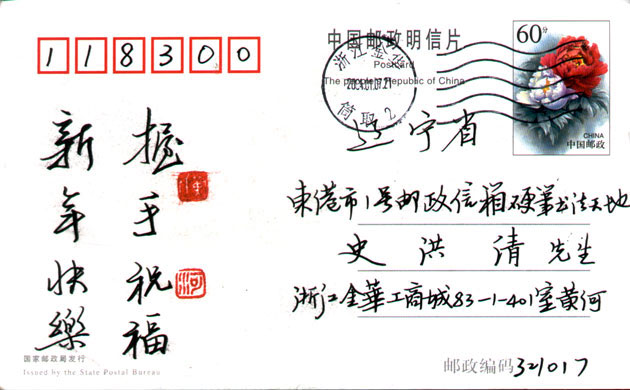 118300
中国邮政明信片
Postcard
The people's Republic of China
60分
CHINA
中国邮政
浙江金华
2004.01.07.21
筒取 2
辽宁省
東港市1号邮政信箱硬笔书法天地
史洪清先生
浙江金華工商城83-1-401室黄河
握手祝福
新年快樂
河
国家邮政局发行
Issued by the State Postal Bureau
邮政编码321017